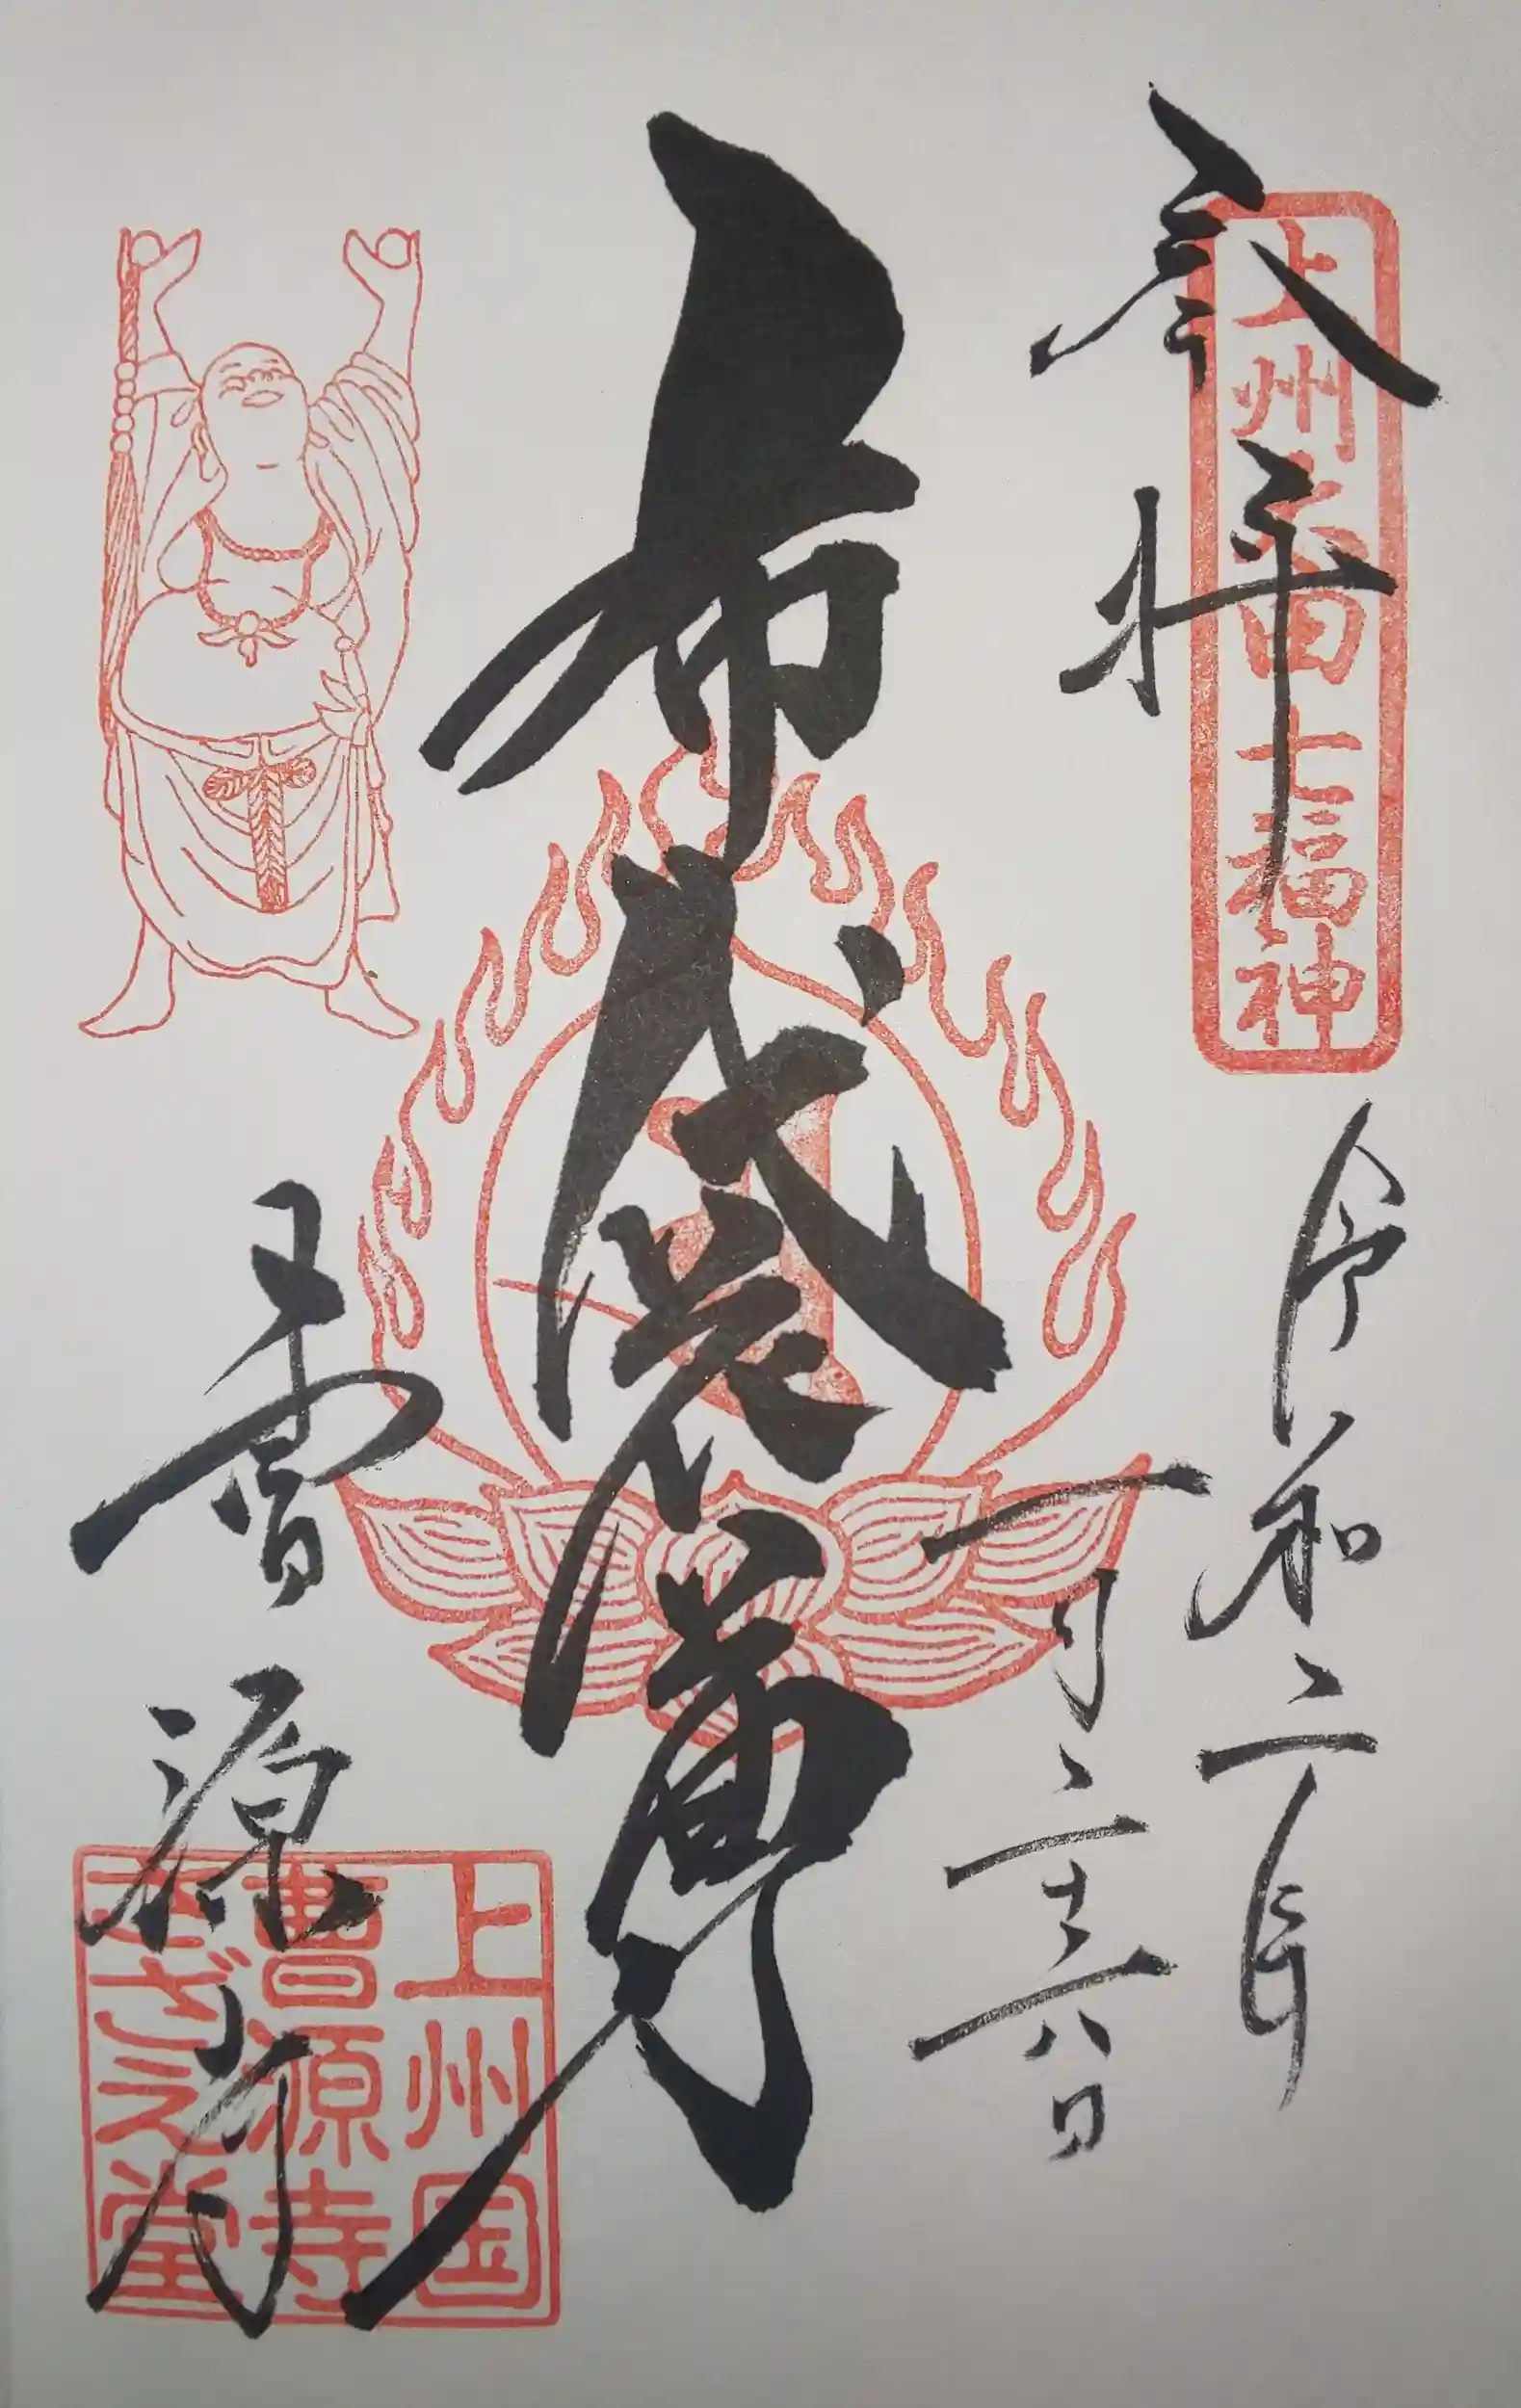 奉拝
上州太田七福神
令和二年
一月二十六日
布袋尊
曹源寺
上州国
曹源寺
さざえ堂